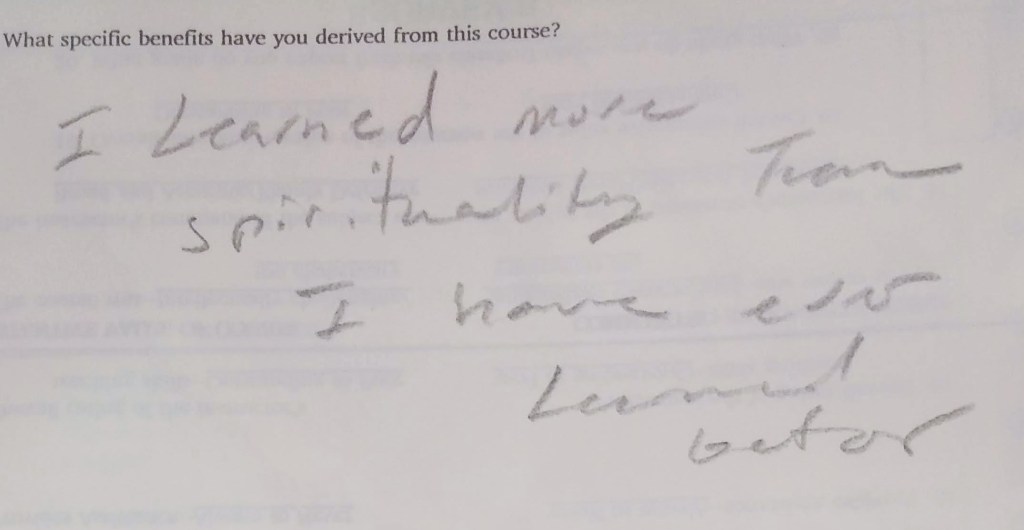 What specific benefits have you derived from this course?
I Learned more
spirituality Than
I have ever
Learned
befor